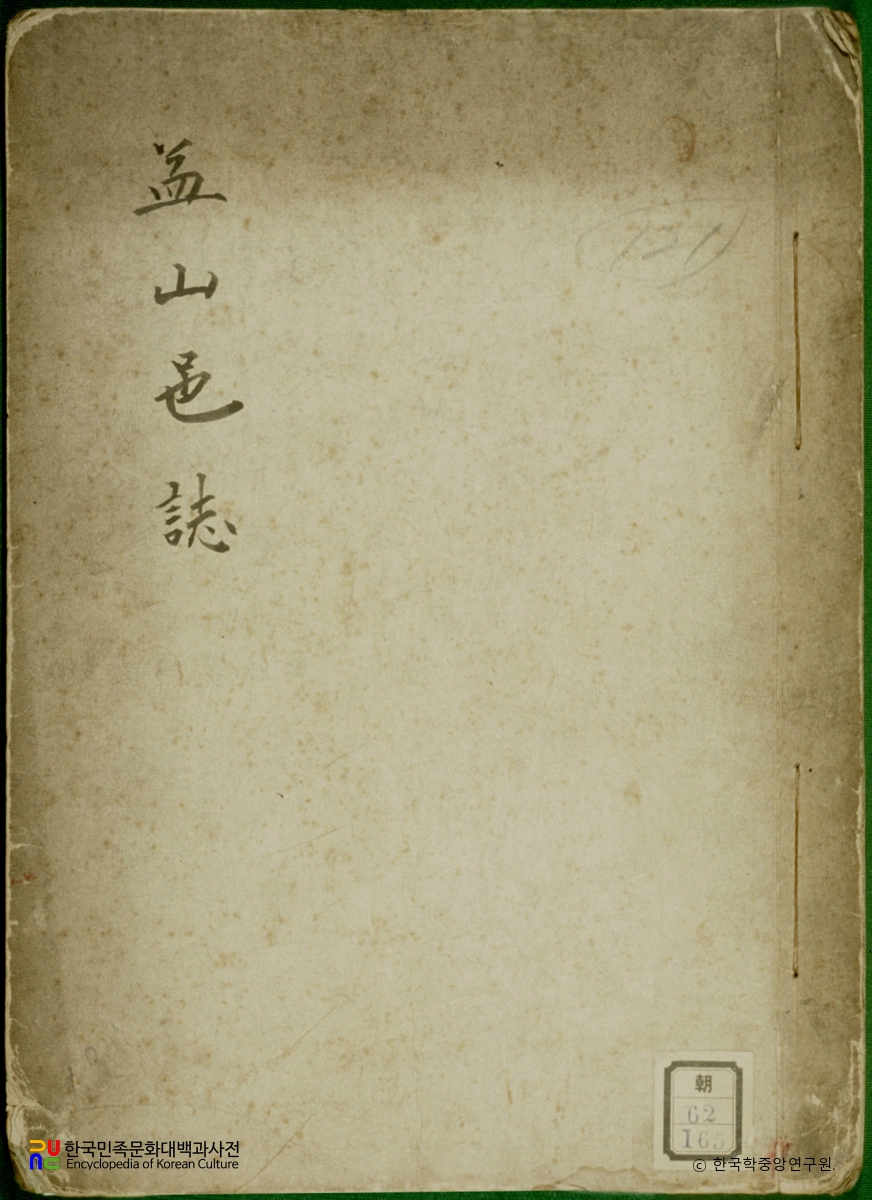 益山邑誌
(121)
朝
62
165
한국민족문화대백과사전
Encyclopedia of Korean Culture
© 한국학중앙연구원.